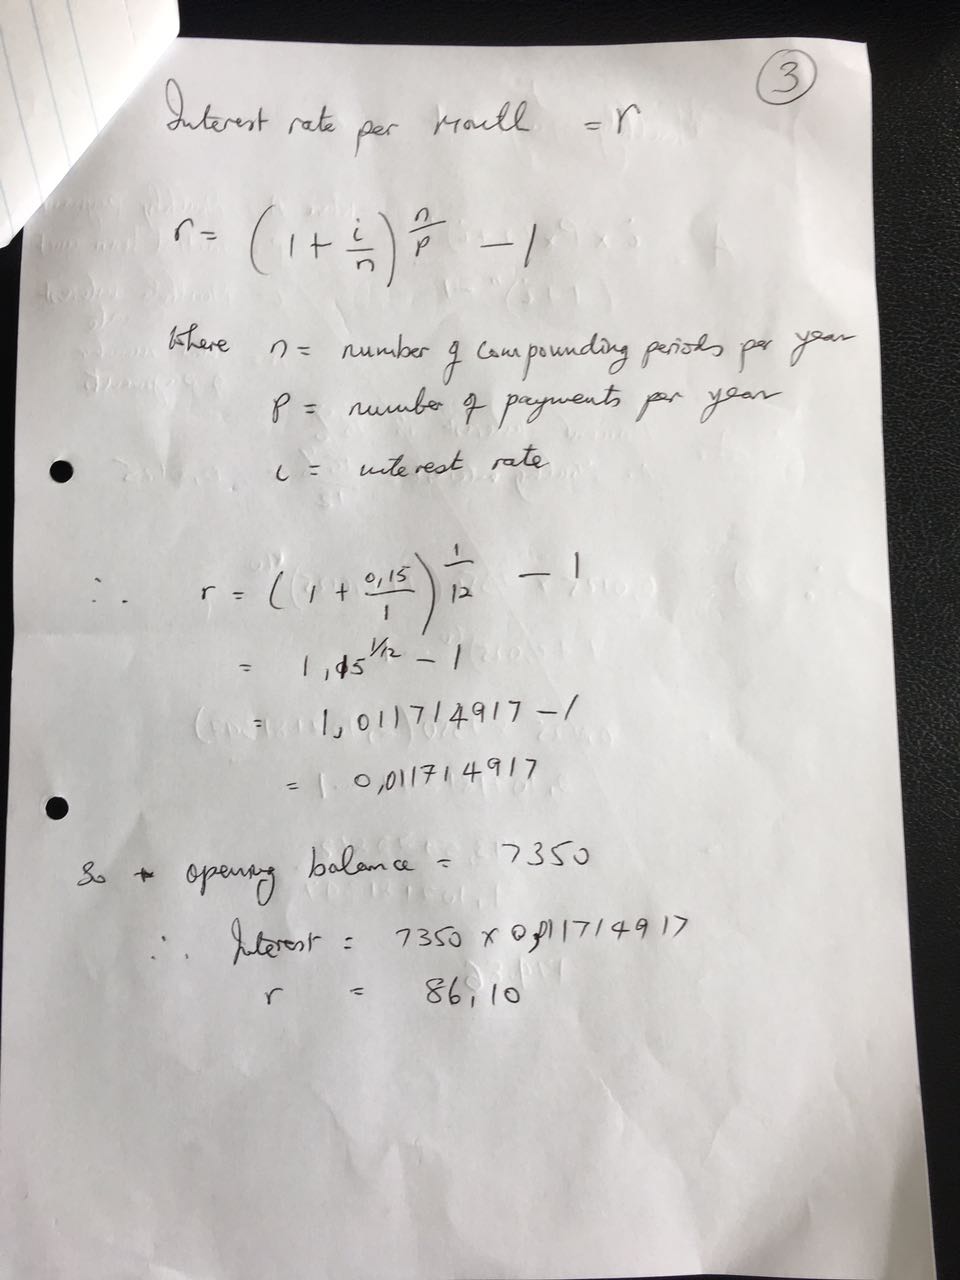 3
Interest rate per month = r
r = (1 + i/n)^n/p - 1
Where n = number of compounding periods per year
p = number of payments per year
i = interest rate
∴ r = (1 + 0,15/1)^1/12 - 1
= 1,15^1/12 - 1
= 1,011714917 - 1
= 0,011714917
So opening balance = 7350
∴ Interest = 7350 x 0,011714917
r = 86,10